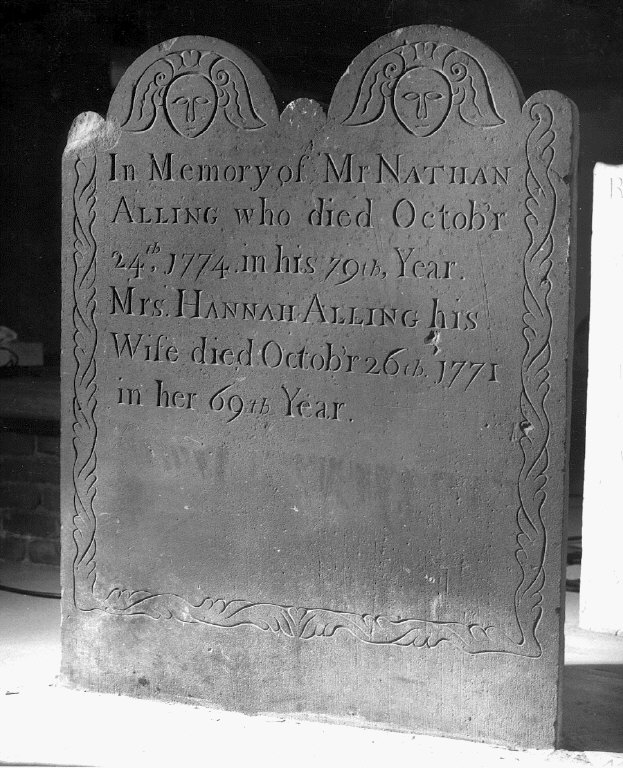 In Memory of Mr NATHAN
ALLING who died Octob'r
24th, 1774. in his 79th, Year.
Mrs. HANNAH ALLING his
Wife died Octob'r 26th. 1771
in her 69th Year.